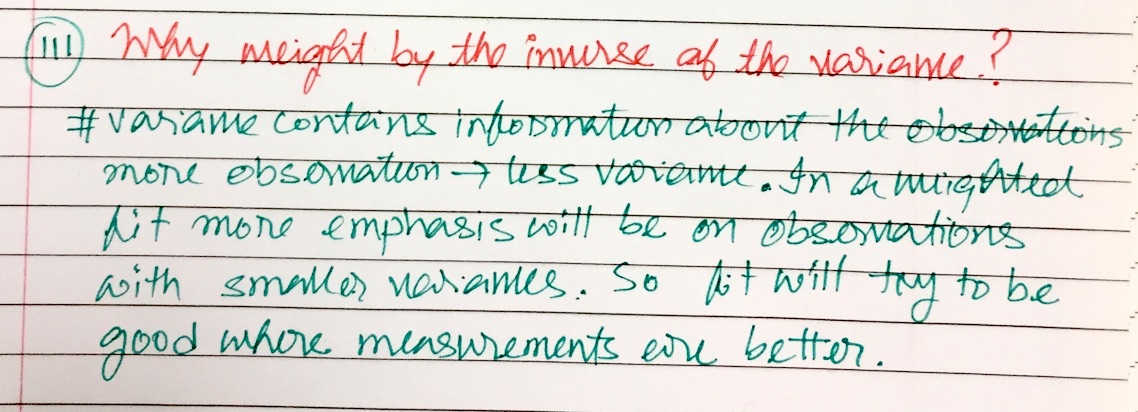 III Why weight by the inverse of the variance?
# variance contains information about the observations
more observation → less variance. In a weighted
fit more emphasis will be on observations
with smaller variances. So fit will try to be
good where measurements are better.